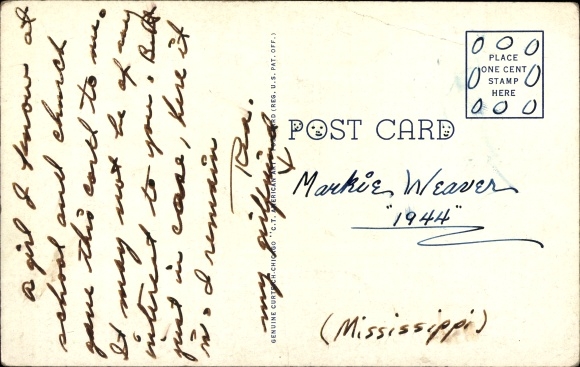 a girl I know at
school and church
gave this card to me.
It may not be of any
interest to you. But
just in case, here it
is. I remain
Rea.
my girlfriend
GENUINE CURTEICH-CHICAGO "C.T. AMERICAN ART" POST CARD (REG. U.S. PAT. OFF.)
POST CARD
PLACE
ONE CENT
STAMP
HERE
Markie Weaver
"1944"
(Mississippi)